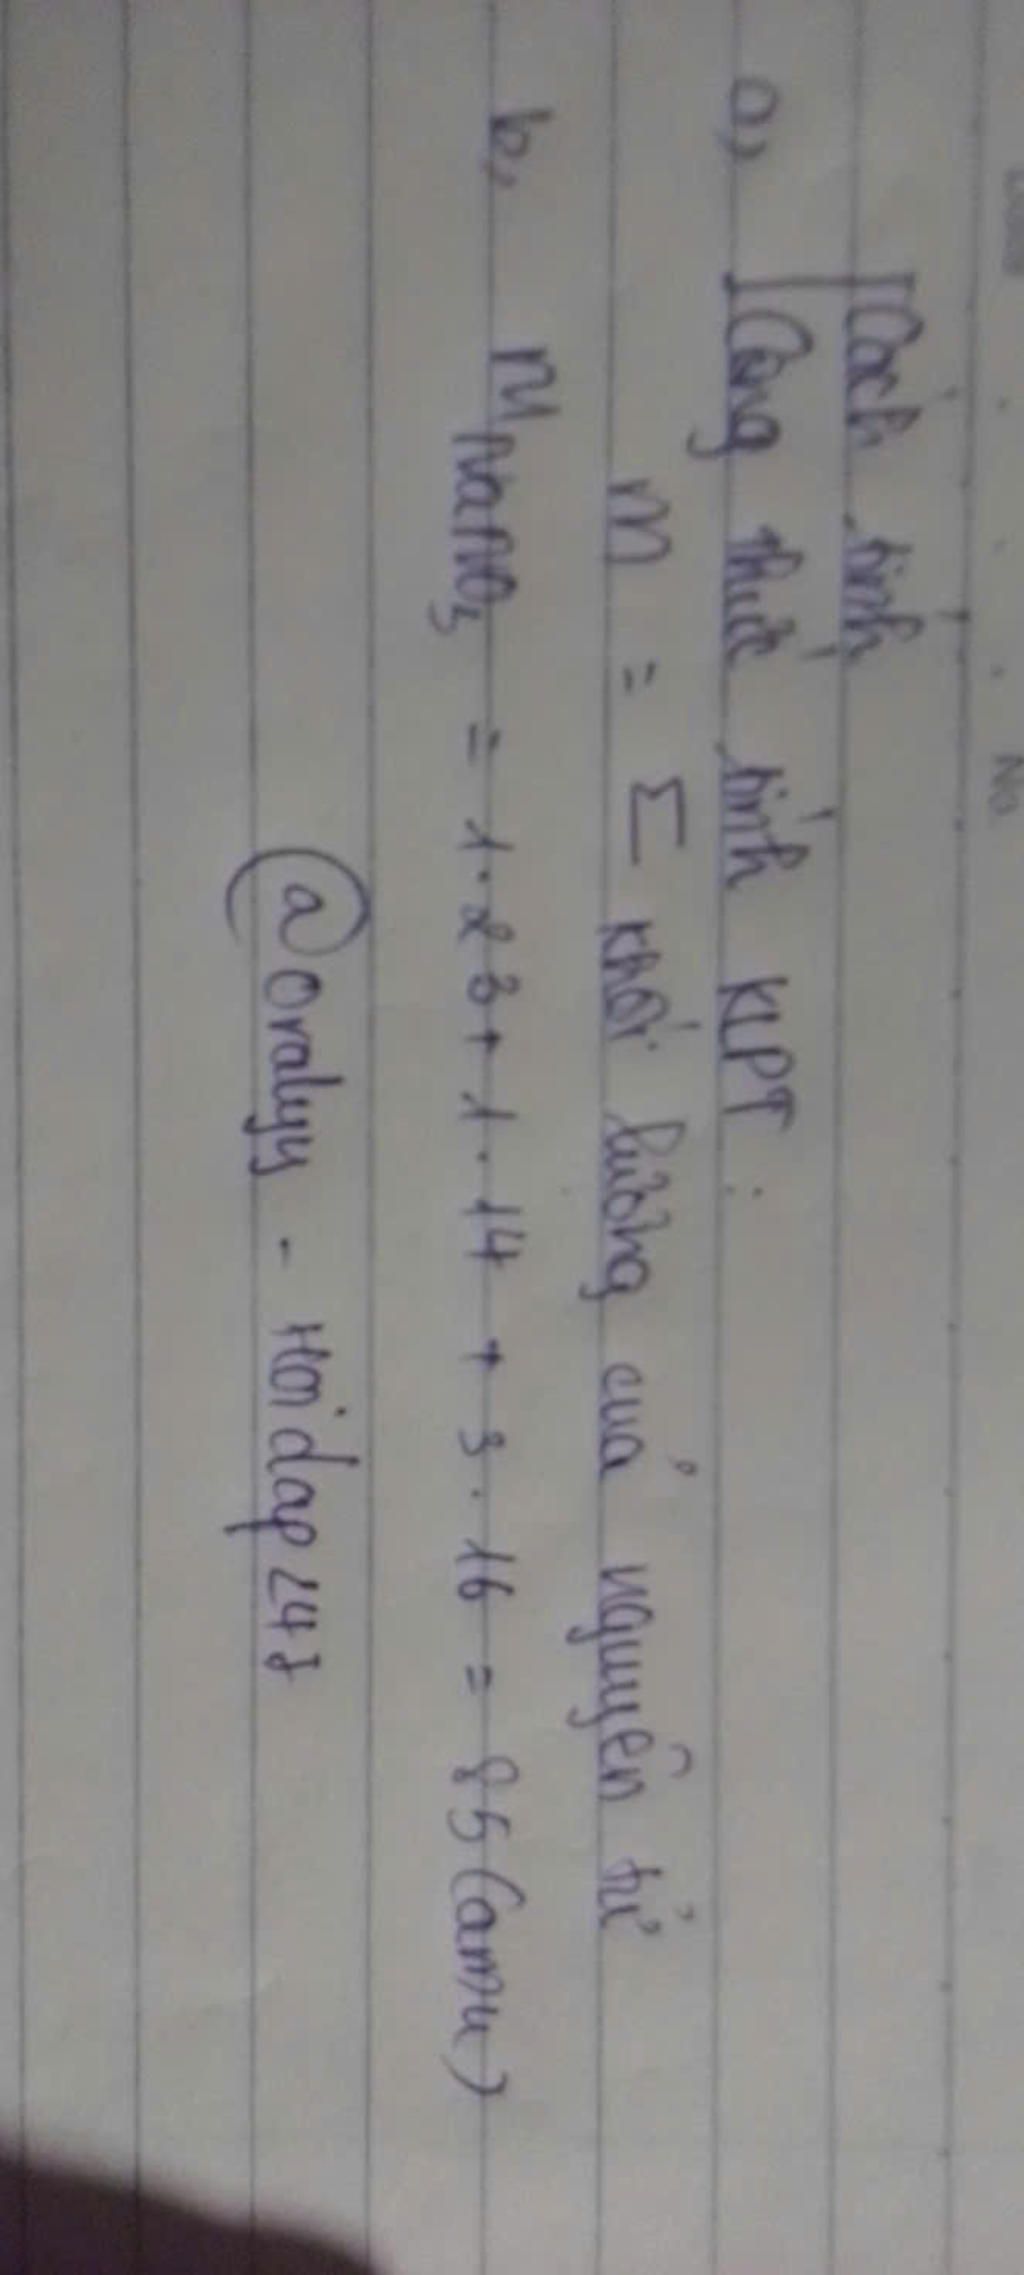 No
Cách tính
a,, Công thức tính KLPT :
M = Σ khối lượng của nguyên tử
b,, MNaNO3 = 1.23 + 1.14 + 3.16 = 85 (amu)
@oralyy - Hoidap247